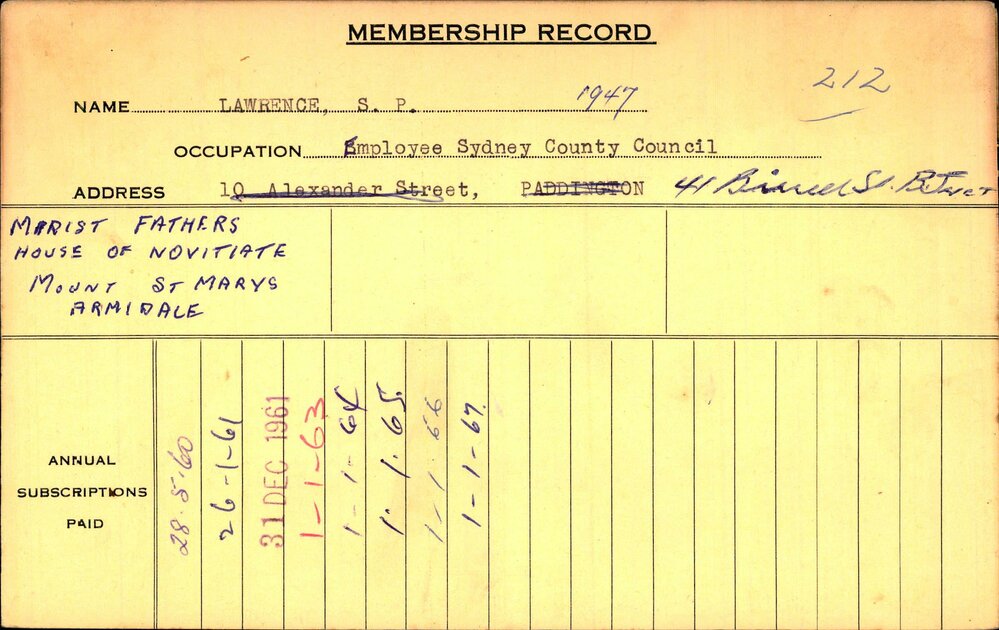 MEMBERSHIP RECORD
212
NAME LAWRENCE, S. P. 1947
OCCUPATION Employee Sydney County Council
ADDRESS 10 Alexander Street, PADDINGTON 41 St.
MARIST FATHERS
HOUSE OF NOVITIATE
MOUNT ST MARYS
ARMIDALE
ANNUAL
SUBSCRIPTIONS
PAID
28.5.60
26-1-61
31 DEC 1961
1-1-63
1-1-64
1.1.65.
1-1.66
1-1-67.